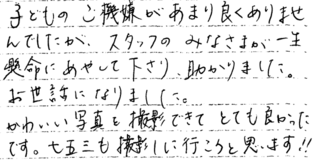 子どものご機嫌があまり良くありませ
んでしたが、スタッフのみなさまが一生
懸命にあやして下さり、助かりました。
お世話になりました。
かわいい写真を撮影できてとても良かった
です。七五三も撮影しに行こうと思います!!